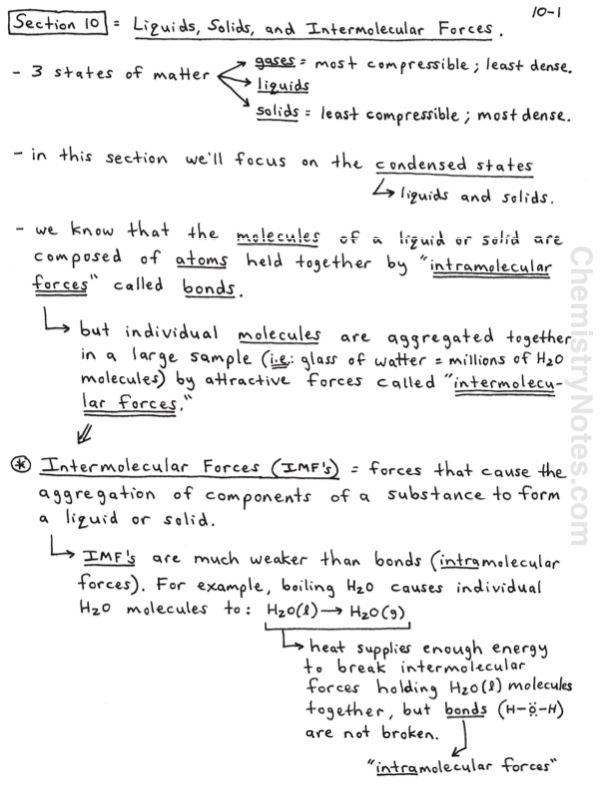 10-1
Section 10 = Liquids, Solids, and Intermolecular Forces.
- 3 states of matter
gases = most compressible; least dense.
liquids
solids = least compressible; most dense.
- in this section we'll focus on the condensed states
liquids and solids.
- we know that the molecules of a liquid or solid are
composed of atoms held together by "intramolecular
forces" called bonds.
but individual molecules are aggregated together
in a large sample (i.e: glass of watter = millions of H2O
molecules) by attractive forces called "intermolecu-
lar forces."
* Intermolecular Forces (IMF's) = forces that cause the
aggregation of components of a substance to form
a liquid or solid.
IMF's are much weaker than bonds (intramolecular
forces). For example, boiling H2O causes individual
H2O molecules to: H2O(l) → H2O(g)
heat supplies enough energy
to break intermolecular
forces holding H2O(l) molecules
together, but bonds (H-Ö-H)
are not broken.
"intramolecular forces"
ChemistryNotes.com